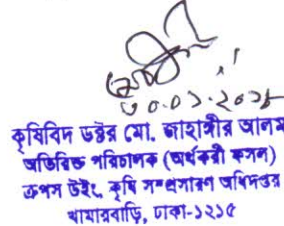 ৩০.০১.২০১৮
কৃষিবিদ ডক্টর মো. জাহাঙ্গীর আলম
অতিরিক্ত পরিচালক (অর্থকরী ফসল)
ক্রপস উইং, কৃষি সম্প্রসারণ অধিদপ্তর
খামারবাড়ি, ঢাকা-১২১৫